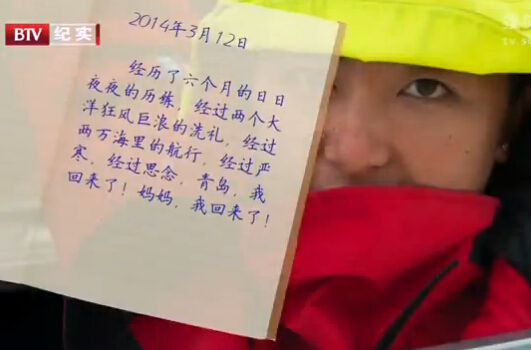 BTV 纪实
2014年3月12日
经历了六个月的日日
夜夜的历练，经过两个大
洋狂风巨浪的洗礼，经过
两万海里的航行，经过严
寒，经过思念，青岛，我
回来了！妈妈，我回来了！